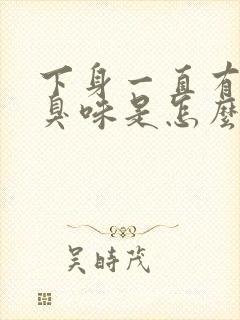 下身一直有
臭味是怎麼
吴時茂